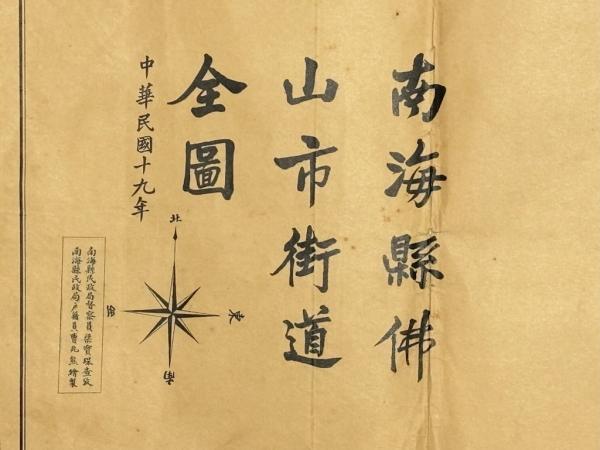 南海縣佛
山市街道
全圖
中華民國十九年
北
東
西
南
南海縣民政局督察員梁寶琛查改
南海縣民政局戶籍員曹兆熊繪製